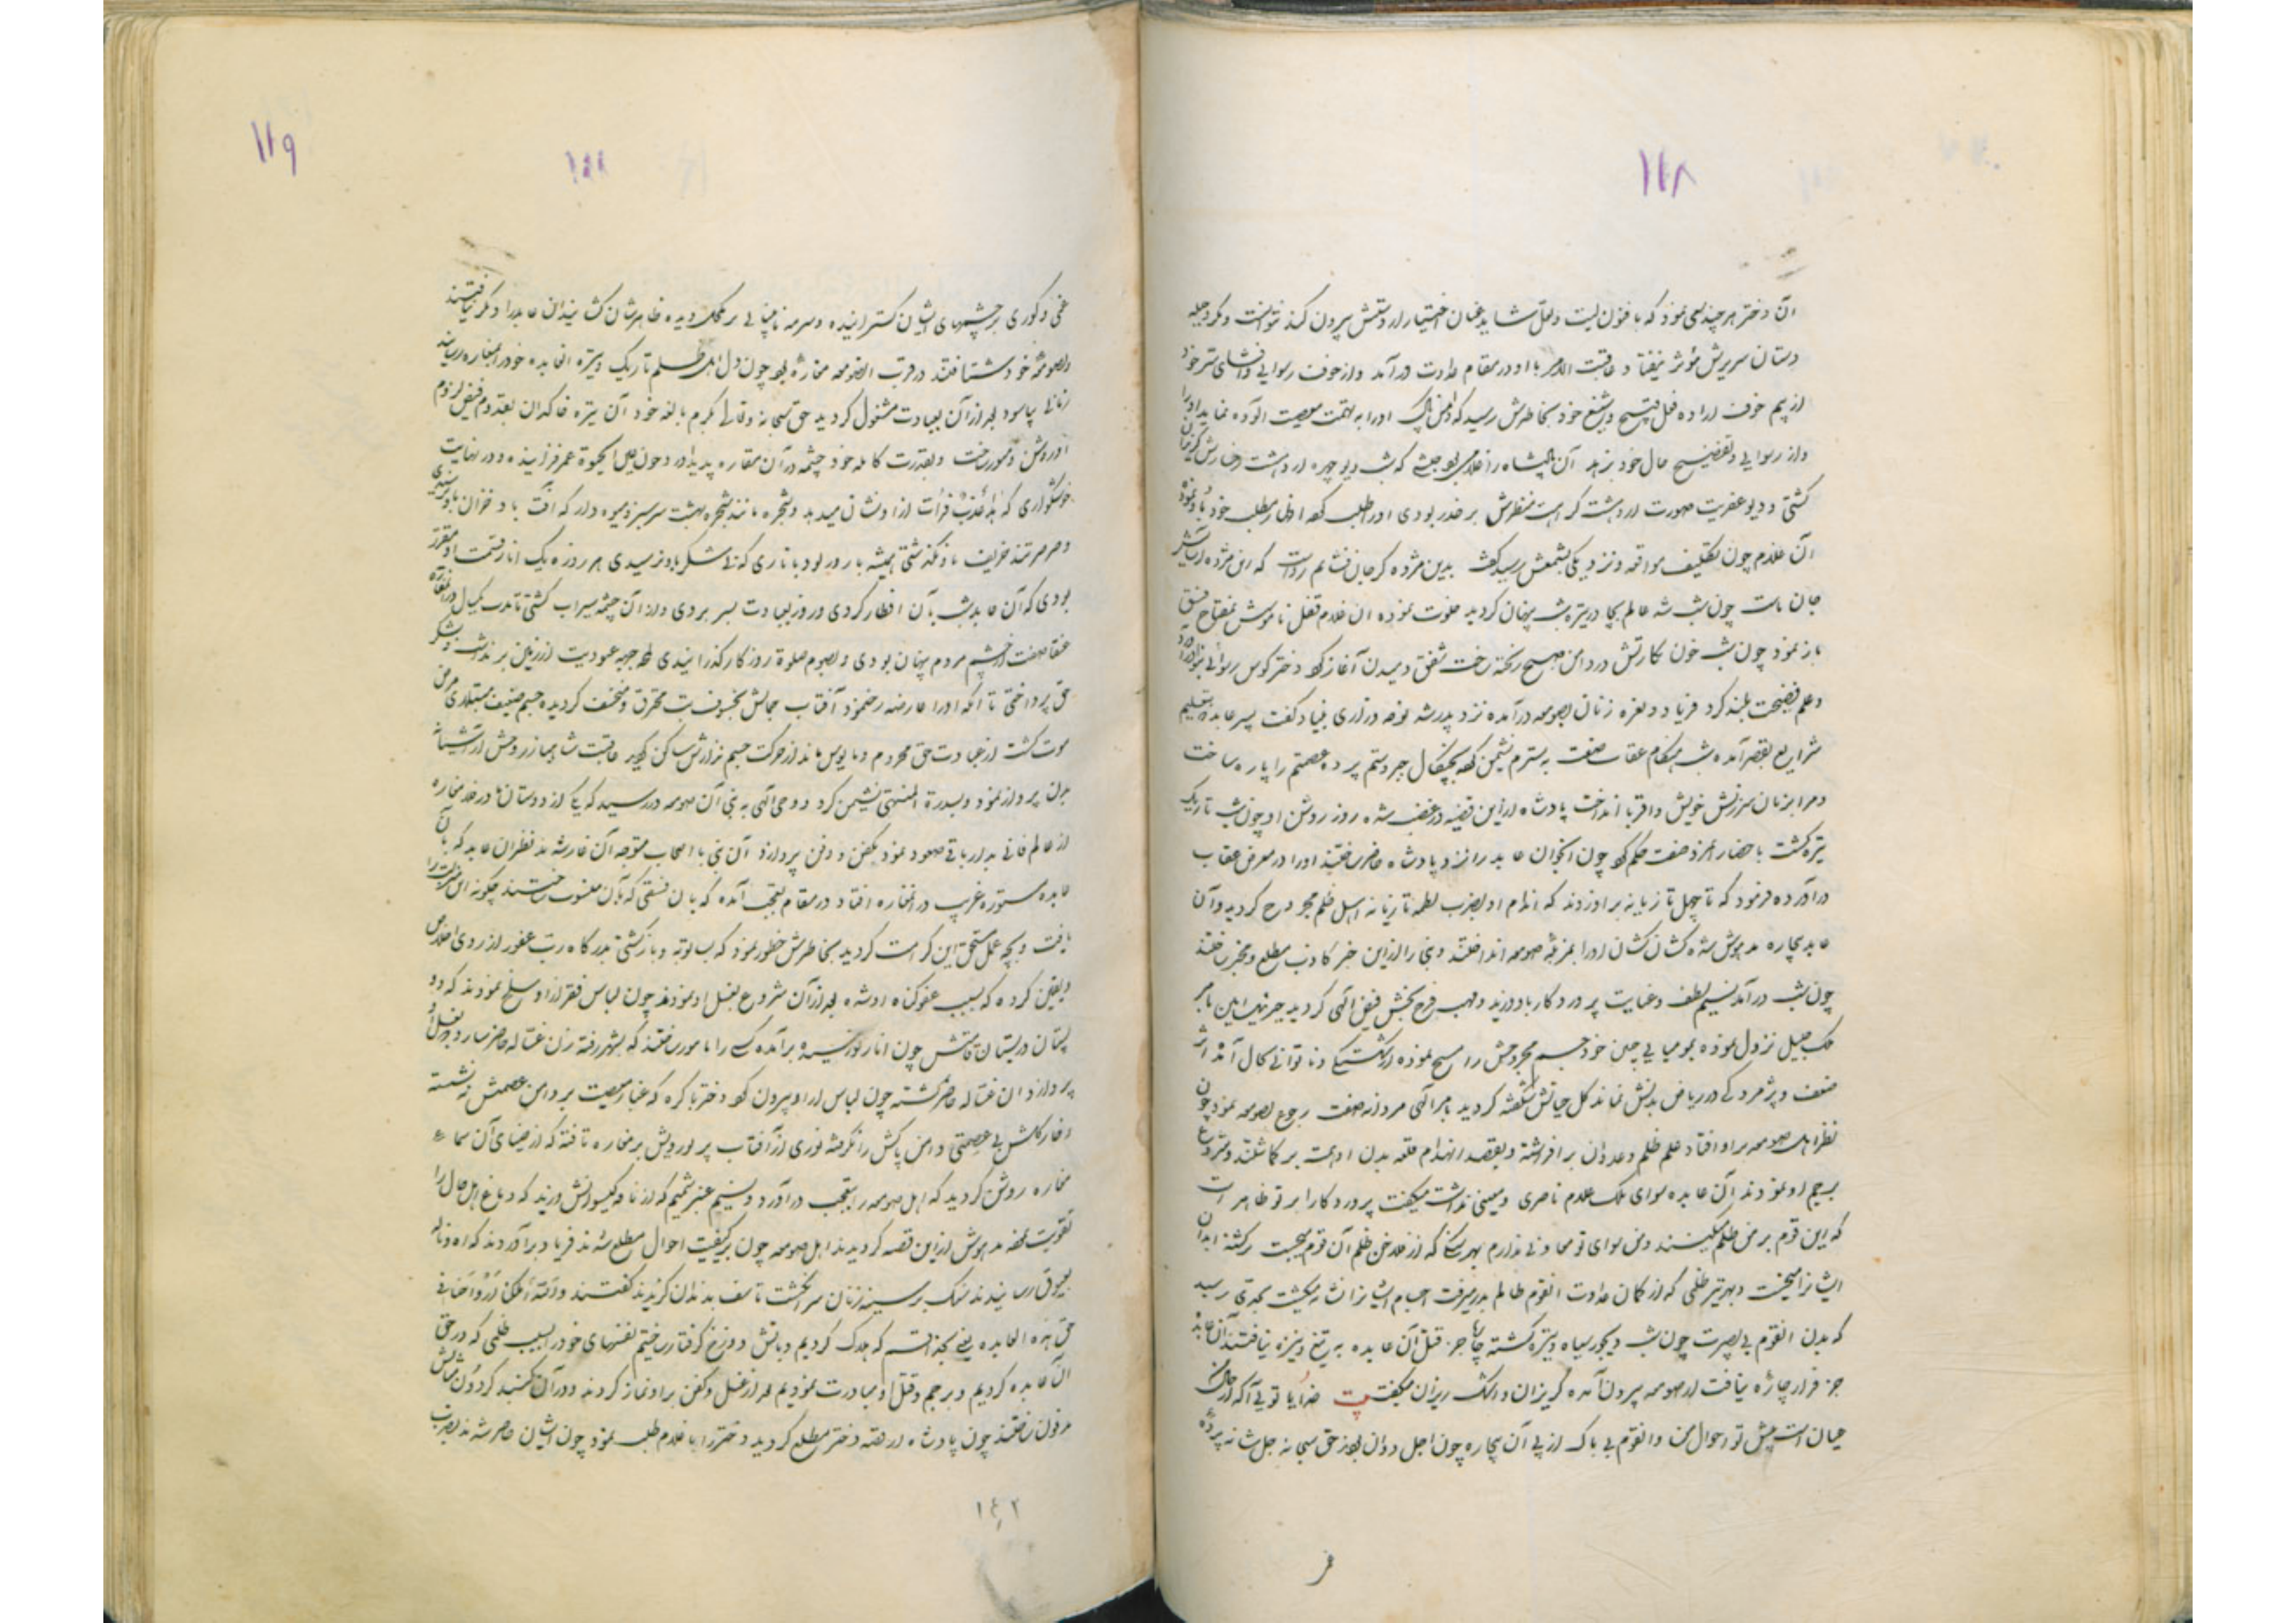 ۱۱۸
آن دختر هر چند سعی نمود که بافسون لیت و لعل شاید عنان اختیار از دستش بیرون کند نتوانست و مکر و حیله
دستان سربرش مؤثر نیفتاد عاقبت الامر با او در مقام عداوت در آمد و از خوف رسوایی و افشای سر خود
از بیم خوف اراده فعل قبیح و شنیع خود بخاطرش رسید که دامن پاک او را به تهمت معصیت آلوده نماید و او را
و از رسوایی و تفضیح حال خود برهد آن پادشاه را غلامی بود حبشی که شب دیو چهره از دهشت رخسارش گریزان
گشتی و دیو عفریت صورت از دهشت کراهت منظرش بر حذر بودی او را طلب کرد اظهار مطلب خود باو نمود
آن غلام چون تکلیف مواقعه و نزدیکی بشمعش رسید گفت بدین مژده گر جان فشانم رواست که این مژده آسایش
جان ماست چون شب شه عالم بجادر تیره شب پنهان گردید خلوت نموده آن غلام قفل ناموسش بمفتاح فسق
باز نمود چون شب خون بکارتش در دامن صبح ریخته رخت شفق دمیدن آغاز کرد دختر کوس رسوائی بنوا آورد
و علم فضیحت بلند کرد فریاد و نعره زنان بصومعه درآمده نزد پدر شد نوحه و زاری بنیاد کرد گفت پسر عابد بتعلیم
شرایع بقصر آمده شب هنگام عقاب صفت به بسترم نشیمن کرد بچنگال جبر و ستم پرده عصمتم را پاره ساخت
و مرا بزبان سرزنش خویش و اقربا انداخت پادشاه از این قضیه در غضب شده روز روشن او چون شب تاریک
تیره گشت باحضار آن مرد صفت حکم کرد چون اخوان عابد را نزد پادشاه حاضر ساختند او را در معرض عقاب
در آورده فرمود که تا چهل تازیانه بر او زدند که اندام او بضرب لطمه تازیانه اهل ظلم مجروح گردید و آن
عابد بیچاره مدهوش شده کشان کشان او را بمزبله صومعه انداختند و بنی را از این خبر کاذب مطلع و مخبر ساختند
چون شب در آمد نسیم لطف و عنایت پروردگار باو وزید و مهب فرح بخش فیض الهی گردید جبرئیل امین بامر
ملک جلیل نزول نموده بمومیایی جبین خود جسم مجروحش را مسح نموده از شکستگی و ناتوانی بحال آمد اثر
ضعف و پژمردگی در ریاض بدنش نماند گل حیاتش شکفته گردید بامر الهی مردانه صفت رجوع بصومعه نمود چون
نظر اهل صومعه بر او افتاد علم ظلم و عدوان بر افراشته و بقصد انهدام قلعه بدن او همت بر گماشتند و شروع
برجم او نمودند آن عابده سوای ملک علام ناصری و معینی نداشت میگفت پروردگارا بر تو ظاهر است
که این قوم بر من ظلم میکنند و من سوای تو معاونی ندارم بهر سنگ که از فلاخن ظلم آن قوم می‌جست بر گشته ابدان
ایشانرا میخست و بهر تیر ظلمی که از کمان عداوت آنقوم ظالم بدر میرفت اجسام ایشانرا نشانه میگشت بحدی رسید
که بدن آنقوم بی بصیرت چون شب دیجور سیاه و تیره گشته چاره جز قتل آن عابده به تیغ و نیزه نیافتند آن عابد
جز فرار چاره نیافت از صومعه بیرون آمده گریزان و اشک ریزان میگفت بیت خدایا تویی آگه از حال من
عیان است پیش تو احوال من و آنقوم بی باک از پی آن بیچاره چون اجل دوان بودند حق سبحانه جل شانه پرده
۱۱۹
غمی و کوری بر چشمهای ایشان گسترانیده و سرمه نابینایی بر محک دیده ظاهرشان کشانیدند آن عابد را دیگر نیافتند
بصومعهٔ خود شتافتند در قرب آن صومعه مغازه بود چون دل اهل ظلم تاریک و تیره آن عابده خود را بمغاره رسانید
زمانی بیاسود بعد از آن بعبادت مشغول گردید حق سبحانه و تعالی بکرم بالغه خود آن تیره خاکدان بقدوم فیض لزوم
او روشن و منور ساخت و بقدرت کامله خود چشمه در آن مغاره پدید آورد و چون عین الحیوة عمر فزاینده و در نهایت
خوشگواری که هذا عذب فرات از او نشان میداد و شجره مانند شجره بهشت سرسبز و میوه دار که آفت باد خزان باو نرسیدی
و صرصر تند خریف باو نگذشتی همیشه بارور بود باناری که تا شکر باو نرسیدی هر روزه یک انار قسمت او مقرر
بودی که آن عابد شب بآن افطار کردی و روز بعبادت بسر بردی و از آن چشمه سیراب گشتی تا مدت یکسال در آن مغاره
عنقا صفت از چشم مردم پنهان بودی و بصوم و صلوة روزگار گذرانیدی که جبهه عبودیت از زمین بر نداشت و بشکر
حق پرداختی تا آنکه او را عارضه رخ نمود آفتاب جمالش بخسوف تب محترق و منخسف گردیده جسم ضعیف مبتلای مرض
موت گشت از عبادت حق محروم و مایوس ماند از حرکت جسم نزارش ساکن گردید عاقبت شاهباز روحش از آشیانهٔ
بدن پرواز نمود و بسدرة المنتهی نشیمن کرد و وحی الهی به بنی آن صومعه در رسید که یکی از دوستان ما در فلان مغاره
از عالم فانی بدار باقی صعود نمود بکفن و دفن پردازد آن بنی با اصحاب متوجه آن غار شدند نظرشان عابد که بآن
عابده مستوره غریب در آن مغاره افتاد در مقام تعجب آمده که بآن فسقی که بآن منسوب ساختند چگونه این مرتبت را
یافت و بچه عمل مستحق این کرامت گردید بخاطرش خطور نمود که بسبب توبه و بازگشتی بدرگاه رب غفور از روی اخلاص
و یقین کرده که بسبب عفو گناه او شده بعد از آن شروع بغسل او نمودند چون لباس فقر از او سلخ نمودند که دو
پستان در بستان قامتش چون انار نورسیده بر آمده کسی را مامور ساختند که بشهر رفته زن غساله حاضر سازد و بغسل او
پردازد آن غساله حاضر گشته چون لباس از او بیرون کرد دختر باکره که غبار معصیت بر دامن عصمتش ننشسته
و خار کلش بی عصمتی دامن پاکش را نگرفته نوری از آفتاب پر نور رویش بر مغاره تافته که از ضیای آن سما
مغاره روشن گردید که اهل صومعه را بتعجب در آورد و نسیم عنبر شمیم که از نافه گیسوانش وزید که دماغ اهل حال را
تقویت نموده مدهوش از این قصه گردیدند اهل صومعه چون بر کیفیت احوال مطلع شدند فریاد بر آوردند که آه و ناله
بعیوق رسانیدند سنگ بر سینه زنان سر انگشت تاسف بدندان گزیدند گفتند والله اهلکنا ارواحنا فی
حق هذه العابده یعنی بخدا قسم که هلاک کردیم و بآتش دوزخ گرفتار ساختیم نفسهای خود را بسبب ظلمی که در حق
آن عابده کردیم و برجم و قتل او مبادرت نمودیم بعد از غسل و کفن بر او نماز کردند و در آن گنبد گردون مثالش
مدفون ساختند چون پادشاه از قصه دختر مطلع گردید دختر را با غلام طلب نمود چون ایشان حاضر شدند بضرب
۱۴۲